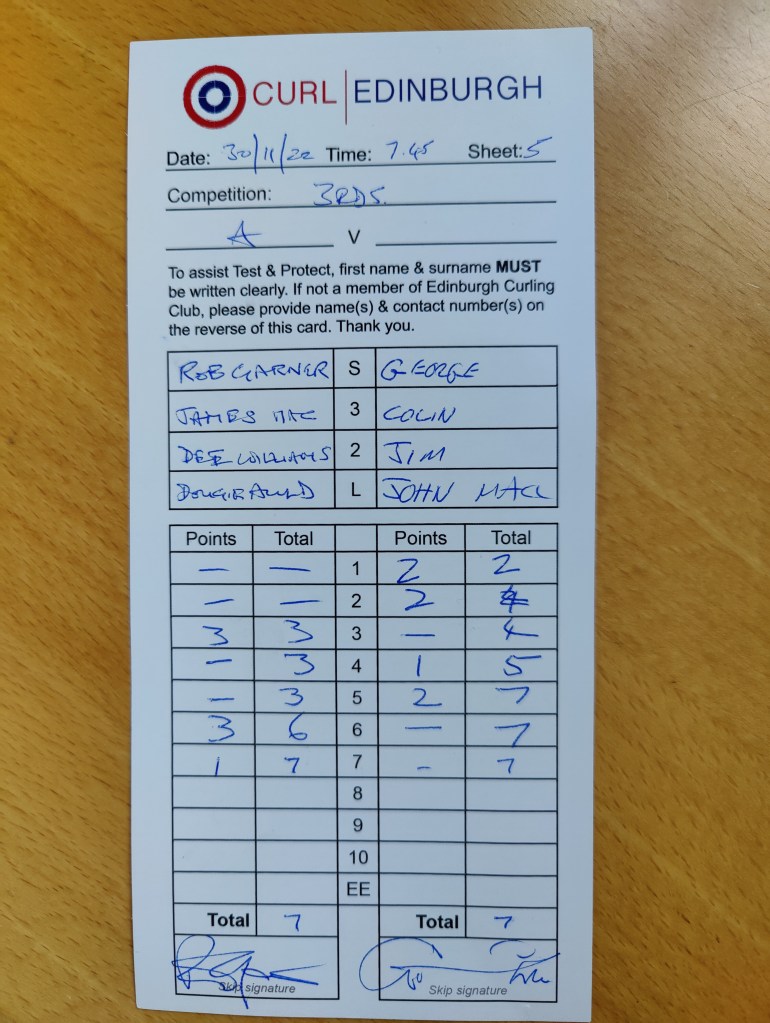 CURL | EDINBURGH
Date: 30/11/22 Time: 7.45 Sheet: 5
Competition: 3RDS.
A V
To assist Test & Protect, first name & surname MUST
be written clearly. If not a member of Edinburgh Curling
Club, please provide name(s) & contact number(s) on
the reverse of this card. Thank you.
ROB GARNER S GEORGE
JAMES MAC 3 COLIN
DEE WILLIAMS 2 JIM
L JOHN MACL
Points Total Points Total
— — 1 2 2
— — 2 2 4
3 3 3 — 4
- 3 4 1 5
- 3 5 2 7
3 6 6 — 7
1 7 7 - 7
8
9
10
EE
Total 7 Total 7
Skip signature Skip signature